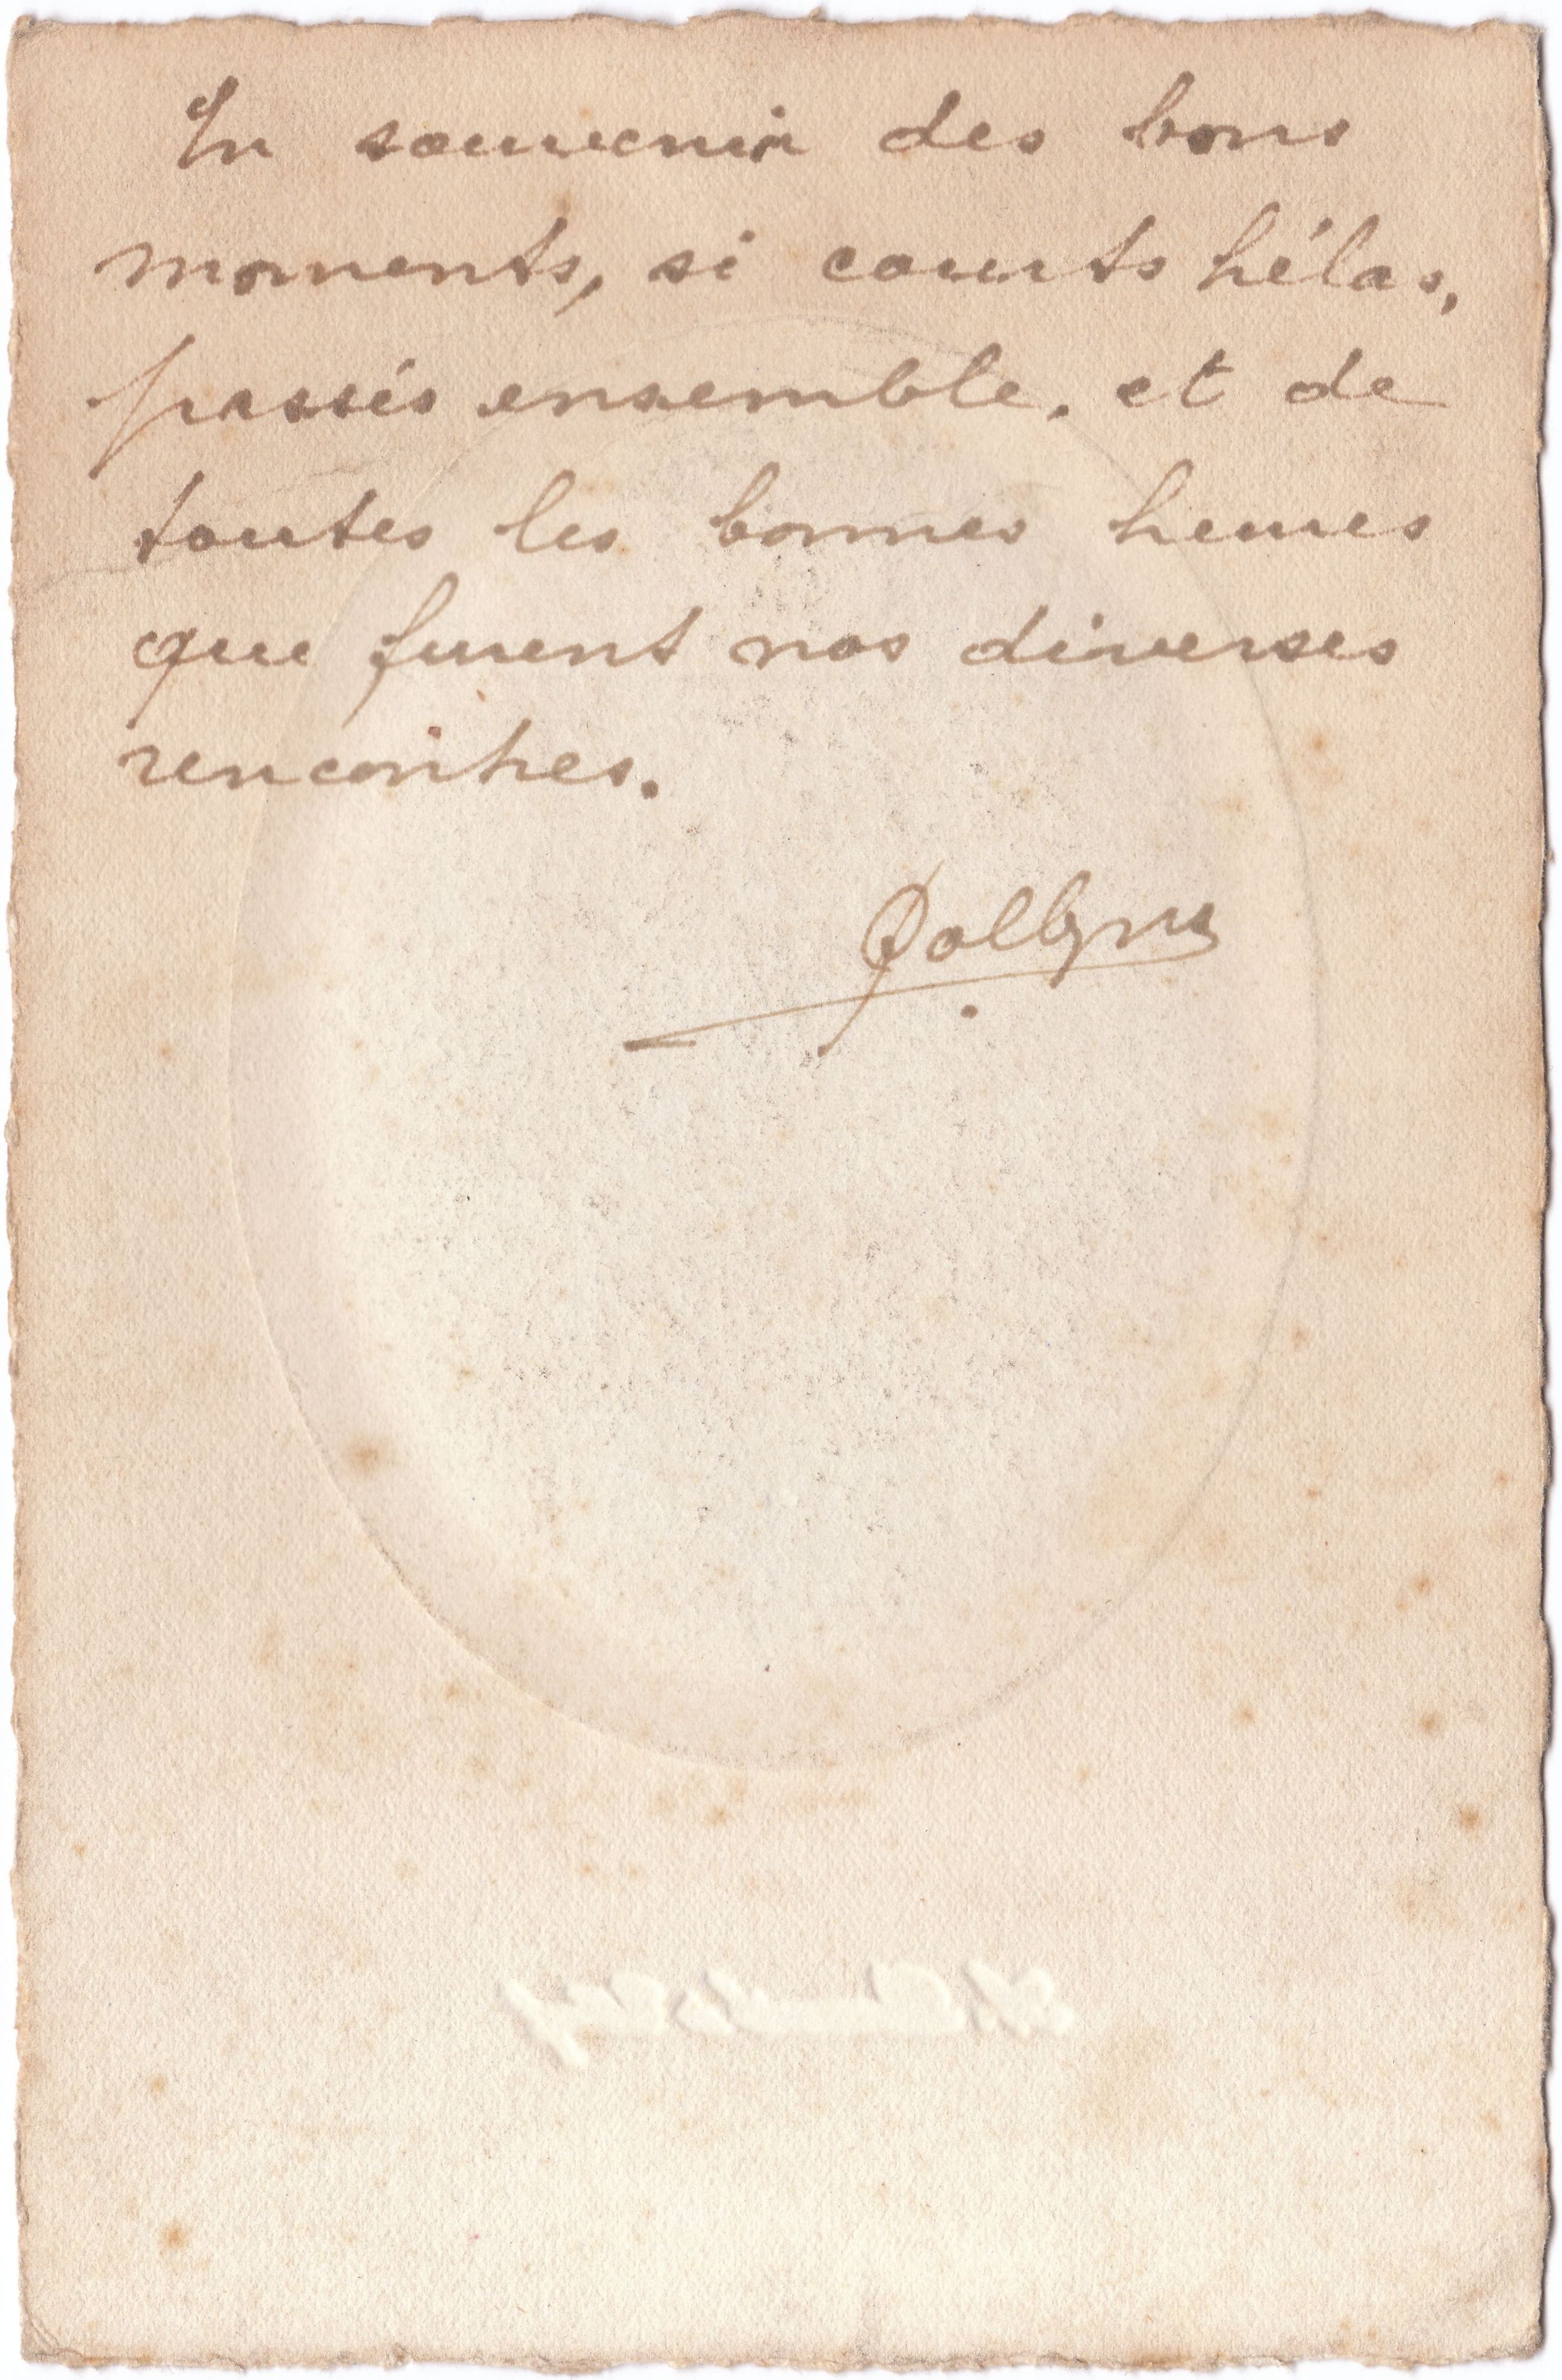 En souvenir des bons
moments, si courts hélas,
passés ensemble. et de
toutes les bonnes heures
que furent nos diverses
rencontres.